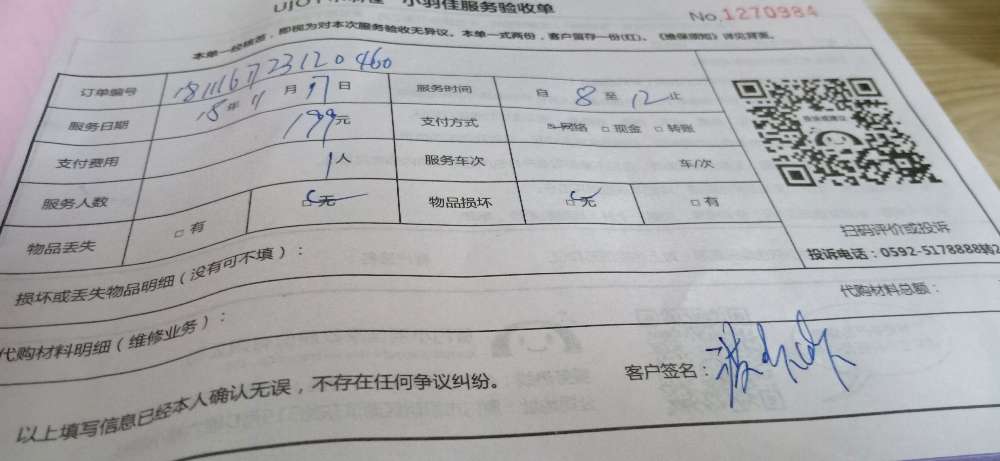 小羽佳服务验收单
No.1270984
本单一经核签，即视为对本次服务验收无异议。本单一式两份，客户留存一份(红)。《维保须知》详见背面。
订单编号 181116172312046₀
服务日期 18年11月17日 服务时间 自 8 至 12 止
支付费用 199元 支付方式 网络 □ 现金 □ 转账
服务人数 1人 服务车次 车/次
物品丢失 □ 有 □ 无 物品损坏 □ 无 □ 有
扫码评价或投诉
投诉电话：0592-5178888转2
损坏或丢失物品明细（没有可不填）：
代购材料明细（维修业务）： 代购材料总额：
以上填写信息已经本人确认无误，不存在任何争议纠纷。 客户签名：